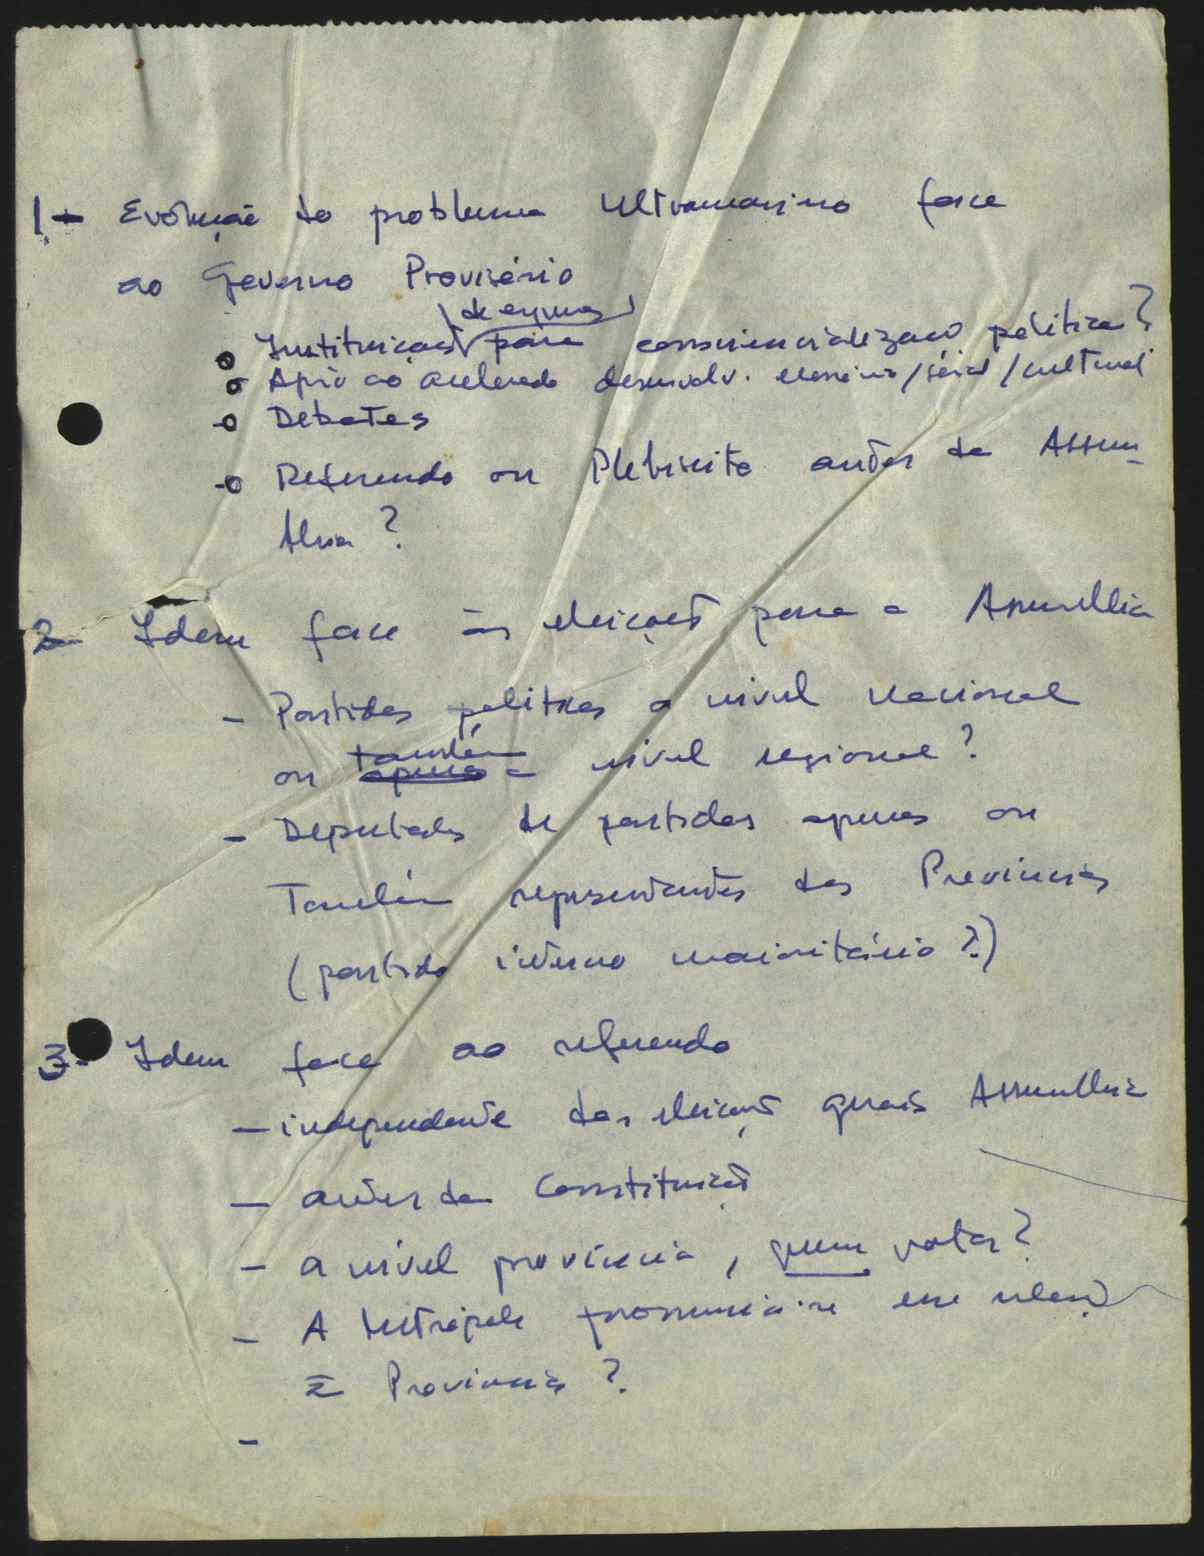 1 - Evolução do problema ultramarino face
ao Governo Provisório
de
o Instituição para consciencialização política?
o Apoio ao acelerado desenvolv. económico/social/cultural
o Debates
o Referendo ou Plebiscito antes da Assem_
bleia?
2 - Idem face às eleições para a Assembleia
- Partidos políticos a nivel nacional
também
ou apenas a nivel regional?
- Deputados de partidos apenas ou
Também representantes das Províncias
(partido interno maioritário?)
3 - Idem face ao referendo
- independente das eleições gerais Assembleia
- antes da Constituição
- a nível província, quem votar?
- A Metrópole pronuncia-se em relação
à Províncias?
-